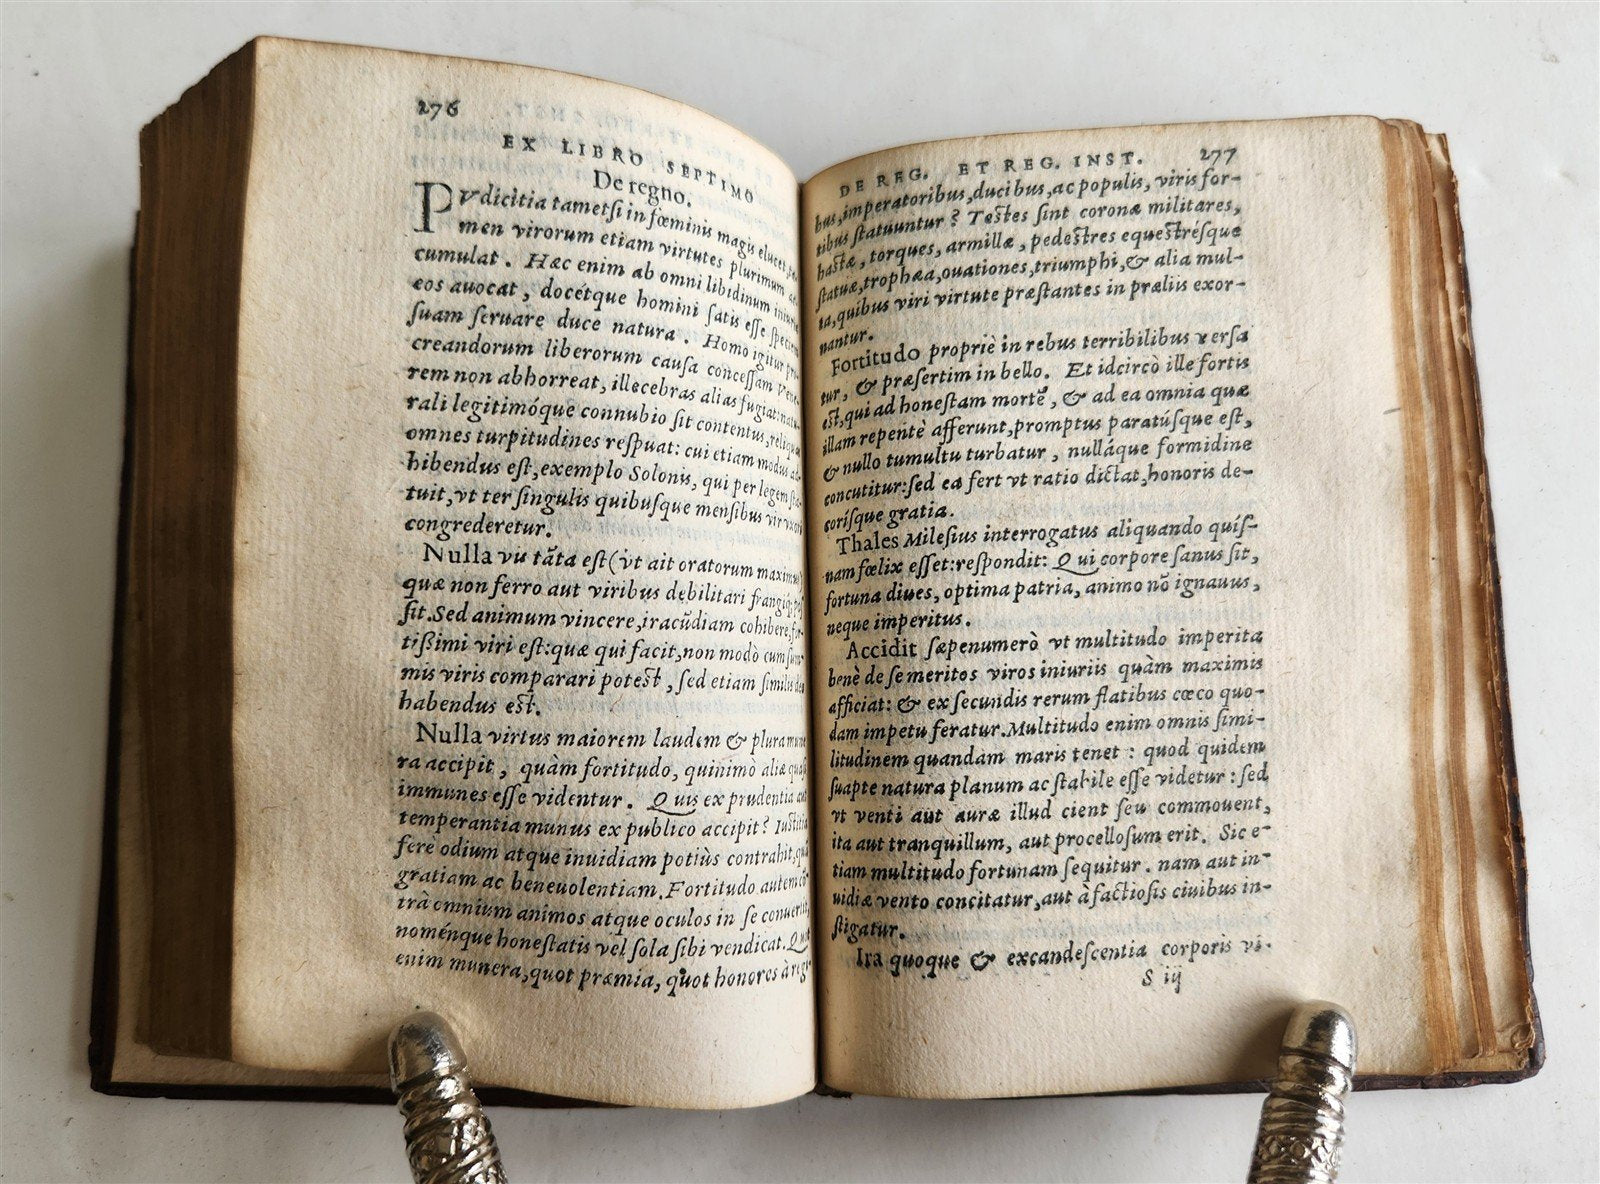 276
EX LIBRO SEPTIMO
De regno.
PVdicitia tametsi in fœminis magis elucet,
men virorum etiam virtutes plurimum
cumulat. Hæc enim ab omni libidinum
eos auocat, docétque homini satis esse
suam seruare duce natura. Homo igitur
creandorum liberorum causa concessam
rem non abhorreat, illecebras alias fugiat:
rali legitimóque connubio sit contentus,
omnes turpitudines respuat: cui etiam modus
hibendus est, exemplo Solonis, qui per legem
tuit, vt ter singulis quibusque mensibus vir
congrederetur.
Nulla vu tãta est (vt ait oratorum
quæ non ferro aut viribus debilitari
sit. Sed animum vincere, iracũdiam cohibere,
tißimi viri est: quæ qui facit, non modò cum
mis viris comparari potest, sed etiam similis
habendus est.
Nulla virtus maiorem laudem & plura
ra accipit, quàm fortitudo, quinimò aliæ
immunes esse videntur. Quis ex prudentia
temperantia munus ex publico accipit? Iustitia
fere odium atque inuidiam potiùs contrahit,
gratiam ac beneuolentiam. Fortitudo autem
trà omnium animos atque oculos in se
noménque honestatis vel sola sibi vendicat.
enim munera, quot præmia, quot honores à
DE REG. ET REG. INST. 277
bus, imperatoribus, ducibus, ac populis, viris for-
tibus statuuntur? Testes sint coronæ militares,
hastæ, torques, armillæ, pedestres equestrésque
statuæ, trophæa, ouationes, triumphi, & alia mul-
ta, quibus viri virtute præstantes in præliis exor-
nantur.
Fortitudo propriè in rebus terribilibus versa
tur, & præsertim in bello. Et idcircò ille fortis
est, qui ad honestam mortẽ, & ad ea omnia quæ
illam repentè afferunt, promptus paratúsque est,
& nullo tumultu turbatur, nulláque formidine
concutitur: sed ea fert vt ratio dictat, honoris de-
corísque gratia.
Thales Milesius interrogatus aliquando quis-
nam fœlix esset: respondit: Qui corpore sanus sit,
fortuna diues, optima patria, animo nõ ignauus,
neque imperitus.
Accidit sæpenumerò vt multitudo imperita
benè de se meritos viros iniuriis quàm maximis
afficiat: & ex secundis rerum flatibus cœco quo-
dam impetu feratur. Multitudo enim omnis simi-
litudinem quandam maris tenet: quod quidem
suapte natura planum ac stabile esse videtur: sed
vt venti aut auræ illud cient seu commouent,
ita aut tranquillum, aut procellosum erit. Sic e-
tiam multitudo fortunam sequitur. nam aut in-
uidiæ vento concitatur, aut à factiosis ciuibus in-
stigatur.
Ira quoque & excandescentia corporis vi-
S iij